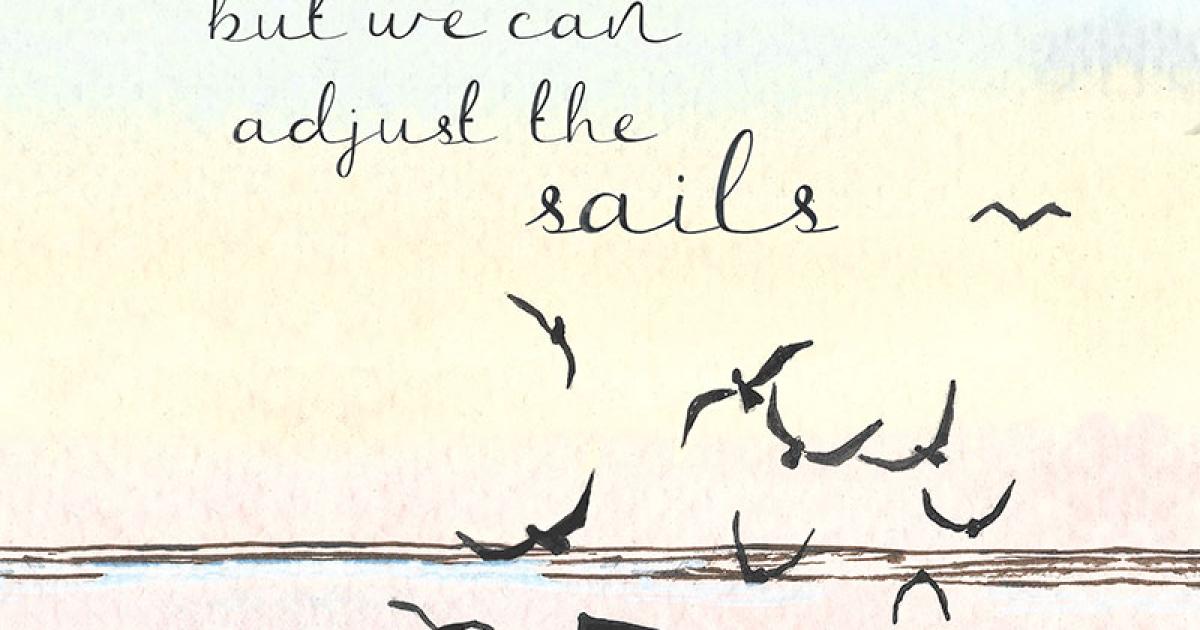 but we can
adjust the
sails